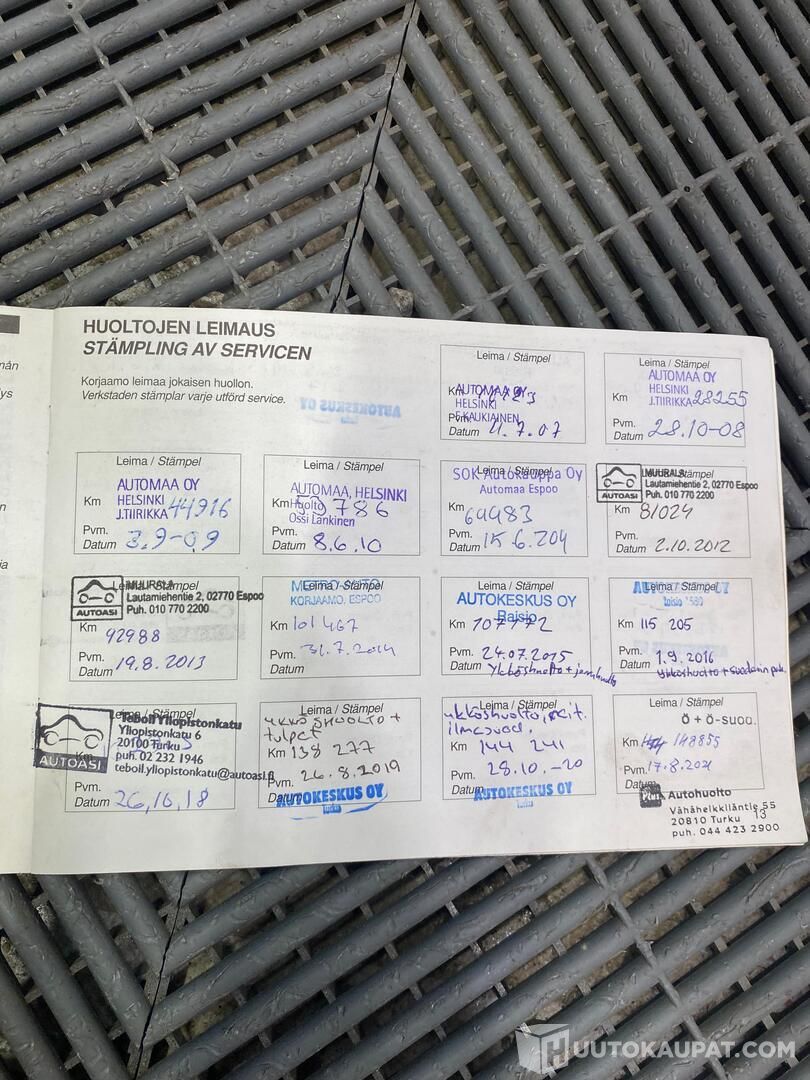 HUOLTOJEN LEIMAUS
STÄMPLING AV SERVICEN
Korjaamo leimaa jokaisen huollon.
Verkstaden stämplar varje utförd service.
Leima / Stämpel
AUTOMAA OY
Km
HELSINKI
E.KAUKIAINEN
Pvm.
Datum 11.7.07
Leima / Stämpel
AUTOMAA OY
HELSINKI
Km J.TIIRIKKA 28255
Pvm.
Datum 28.10-08
Leima / Stämpel
AUTOMAA OY
Km HELSINKI 44916
J.TIIRIKKA
Pvm.
Datum 3.9-09
Leima / Stämpel
AUTOMAA, HELSINKI
Km Huolto 53786
Ossi Lankinen
Pvm.
Datum 8.6.10
Leima / Stämpel
SOK Autokauppa Oy
Automaa Espoo
Km 64483
Pvm.
Datum
Leima / Stämpel
AUTOASI
MUURALA
Lautamiehentie 2, 02770 Espoo
Puh. 010 770 2200
Km 81024
Pvm.
Datum 2.10.2012
Leima / Stämpel
AUTOASI
MUURALA
Lautamiehentie 2, 02770 Espoo
Puh. 010 770 2200
Km 92988
Pvm.
Datum 19.8.2013
Leima / Stämpel
METRO-AUTO
KORJAAMO, ESPOO
Km 101 467
Pvm.
Datum 31.7.2014
Leima / Stämpel
AUTOKESKUS OY
Raisio
Km 107772
Pvm. 24.07.2015
Datum Ykköshuolto +
Leima / Stämpel
AUTOKESKUS OY
Km 115 205
Pvm.
Datum 1.9.2016
ykköshuolto +
Leima / Stämpel
AUTOASI
Teboil Yliopistonkatu
Yliopistonkatu 6
20100 Turku
puh. 02 232 1946
teboil.yliopistonkatu@autoasi.fi
Km
Pvm.
Datum 26,10,18
Leima / Stämpel
ykköSHUOLTO +
tulpat
Km 138 277
Pvm. 26.8.2019
Datum
AUTOKESKUS OY
Turku
Leima / Stämpel
ykköshuolto, rait.
ilmasuod.
Km 144 241
Pvm. 28.10.-20
Datum
AUTOKESKUS OY
Turku
Leima / Stämpel
Ö + Ö-suod.
Km 148855
Pvm. 17.8.2021
Datum
Autohuolto
Vähäheikkiläntie 55
20810 Turku
puh. 044 423 2900
13
HUUTOKAUPAT.COM